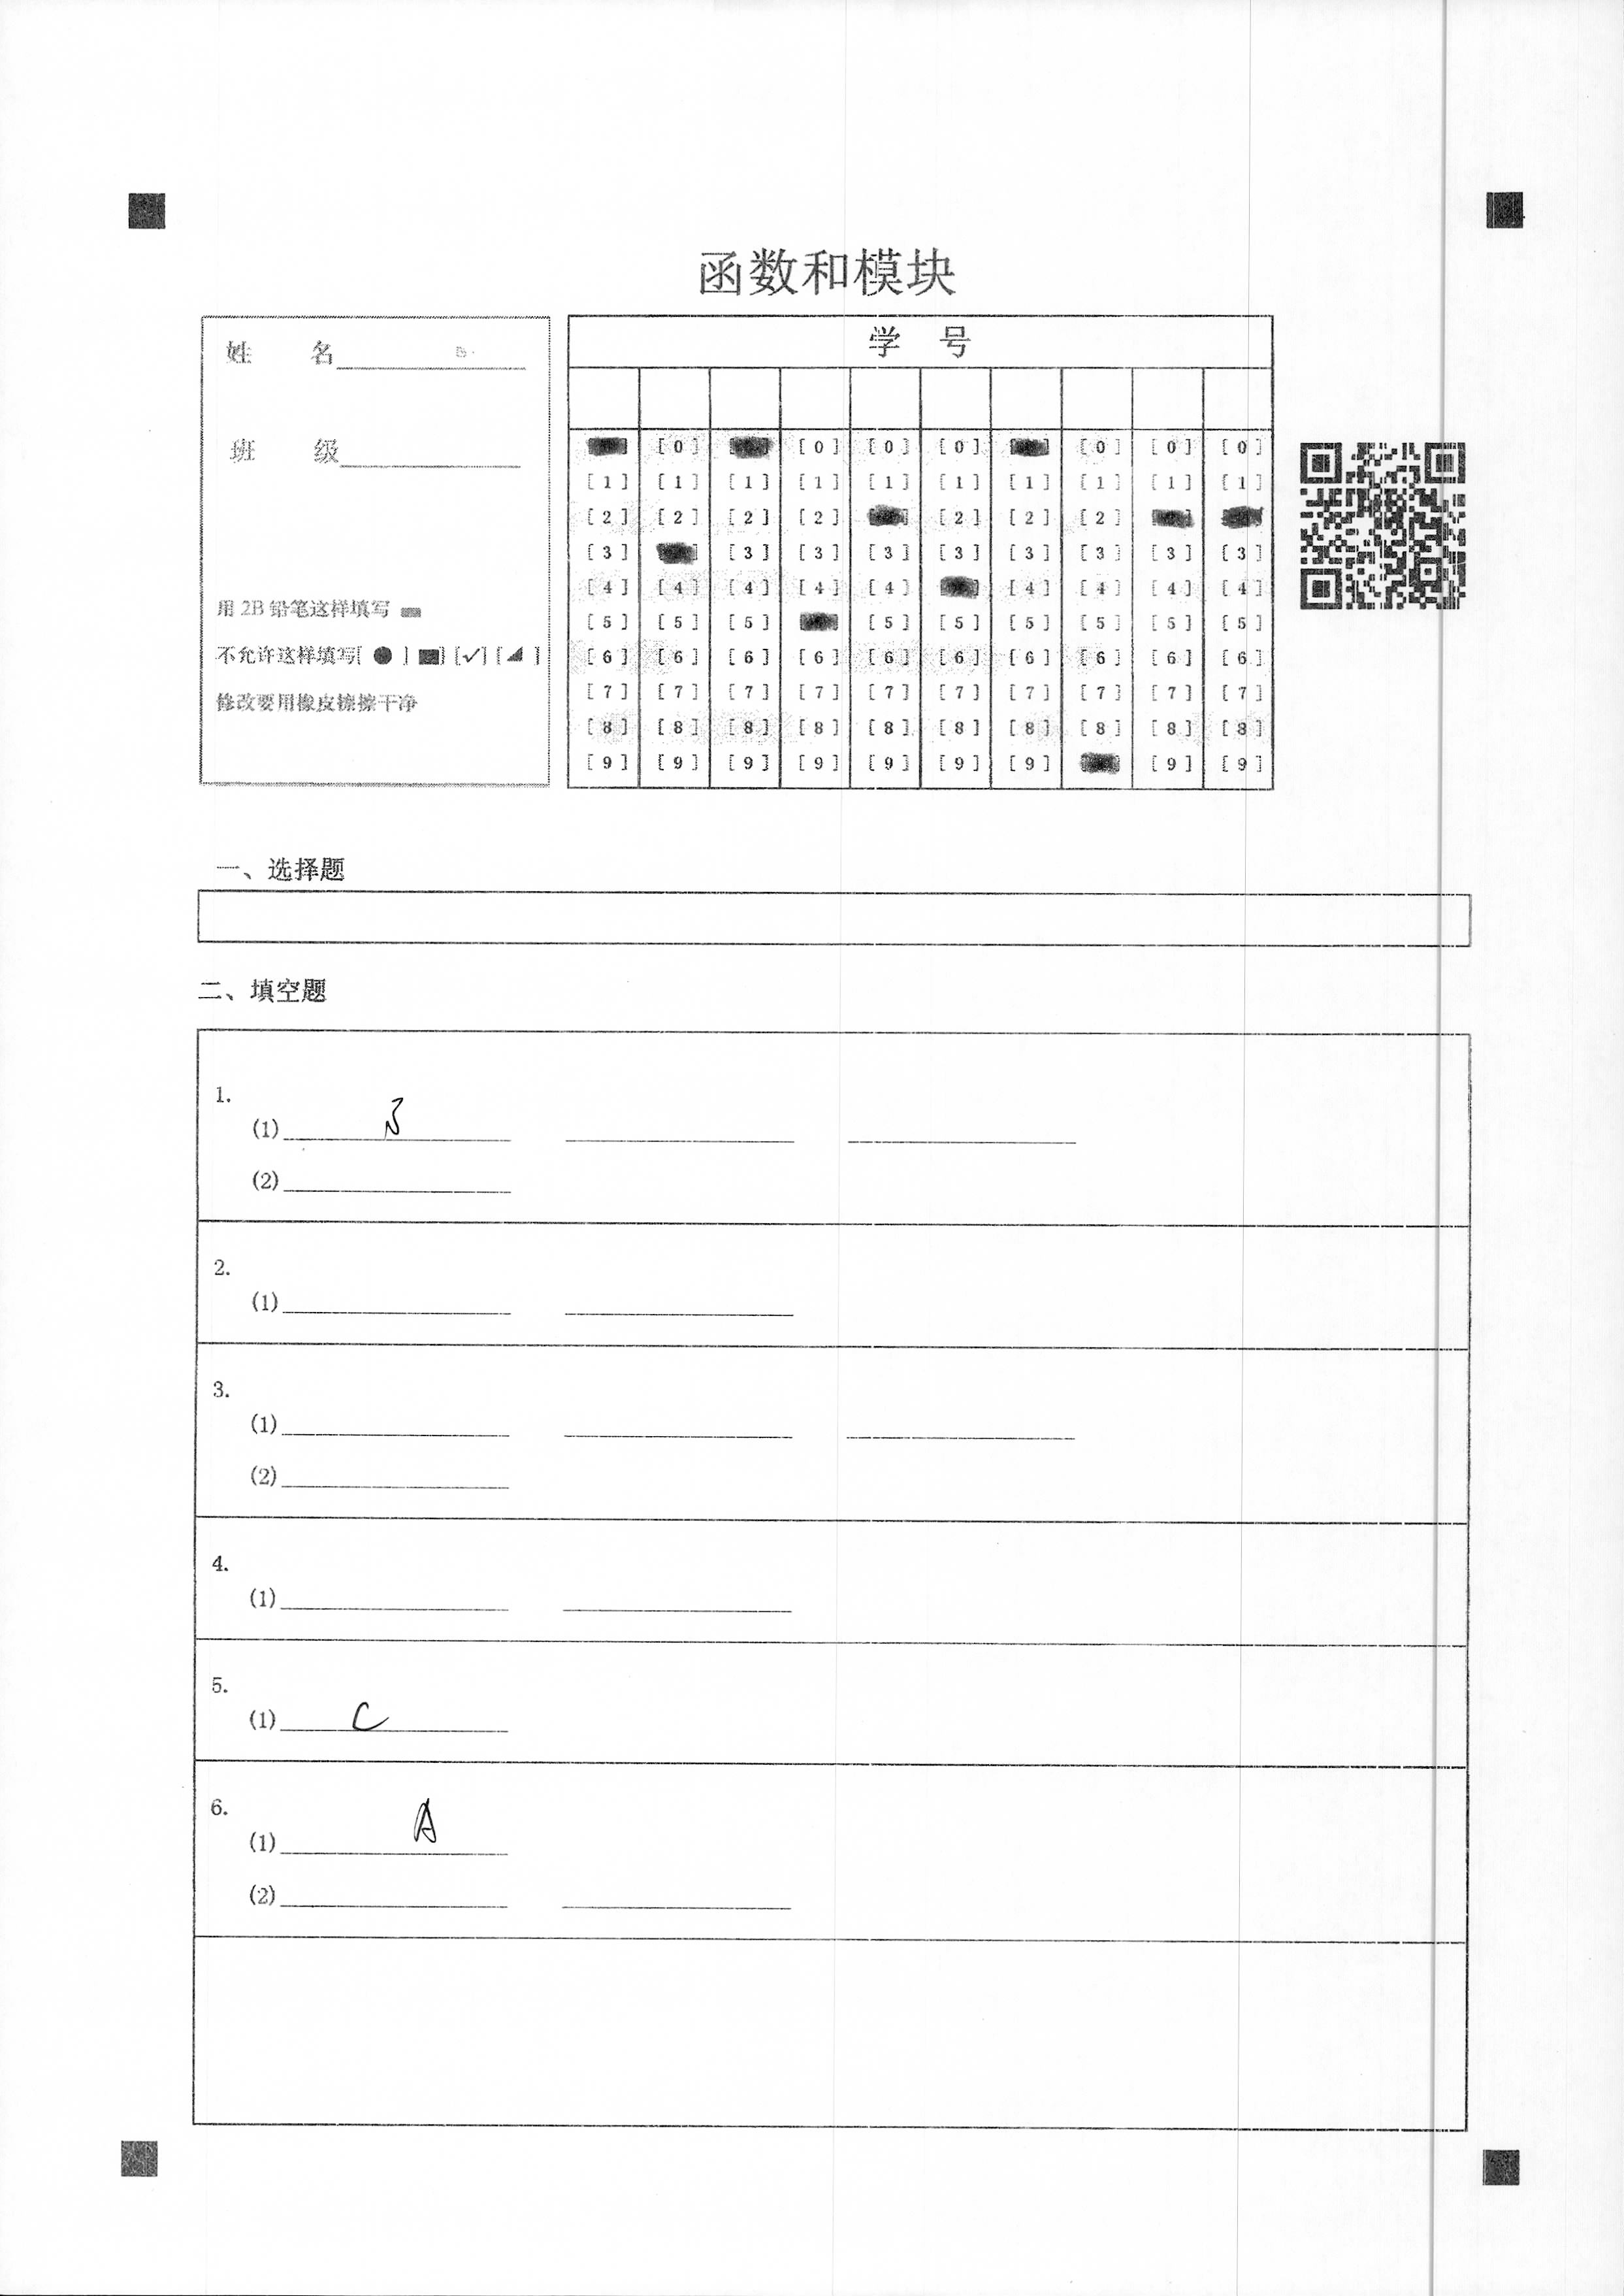 函数和模块
姓 名
班 级
用 2B 铅笔这样填写
不允许这样填写[ ● ] [■] [✓] [◢ ]
修改要用橡皮擦擦干净
学 号
[0] [0] [0] [0] [0] [0] [0]
[1] [1] [1] [1] [1] [1] [1] [1] [1] [1]
[2] [2] [2] [2] [2] [2] [2]
[3] [3] [3] [3] [3] [3] [3] [3] [3]
[4] [4] [4] [4] [4] [4] [4] [4] [4]
[5] [5] [5] [5] [5] [5] [5] [5] [5]
[6] [6] [6] [6] [6] [6] [6] [6] [6] [6]
[7] [7] [7] [7] [7] [7] [7] [7] [7] [7]
[8] [8] [8] [8] [8] [8] [8] [8] [8] [8]
[9] [9] [9] [9] [9] [9] [9] [9] [9]
一、选择题
二、填空题
1.
(1)
(2)
2.
(1)
3.
(1)
(2)
4.
(1)
5.
(1) C
6.
(1) A
(2)